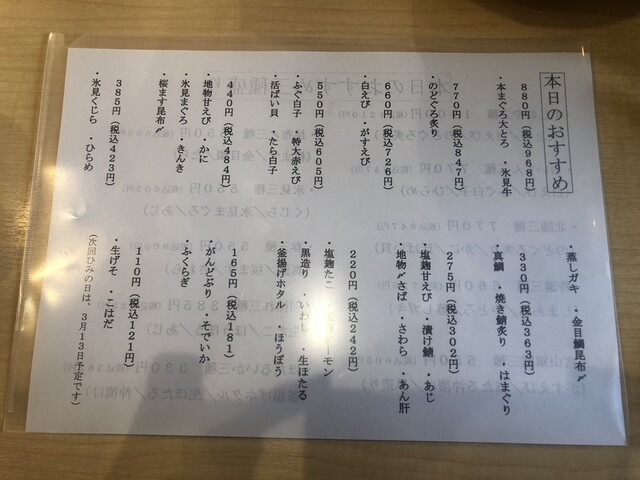 本日のおすすめ
880円（税込968円）
・本まぐろ大とろ ・氷見牛
770円（税込847円）
・のどぐろ炙り
660円（税込726円）
・白えび ・がすえび
550円（税込605円）
・ふぐ白子 ・特大赤えび
・活ばい貝 ・たら白子
440円（税込484円）
・地物甘えび ・かに
・氷見まぐろ ・きんき
・桜ます昆布〆
385円（税込423円）
・氷見くじら ・ひらめ
・蒸しガキ ・金目鯛昆布〆
330円（税込363円）
・真鯛 ・焼き鯖炙り ・はまぐり
275円（税込302円）
・塩麹甘えび ・漬け鮪 ・あじ
・地物〆さば ・さわら ・あん肝
220円（税込242円）
・塩麹たこ ーモン
・黒造り ・いわし ・生ほたる
・釜揚げホタル ・ほうぼう
165円（税込181）
・がんどぶり ・そでいか
・ふくらぎ
110円（税込121円）
・生げそ ・こはだ
（次回ひみの日は、3月13日予定です）